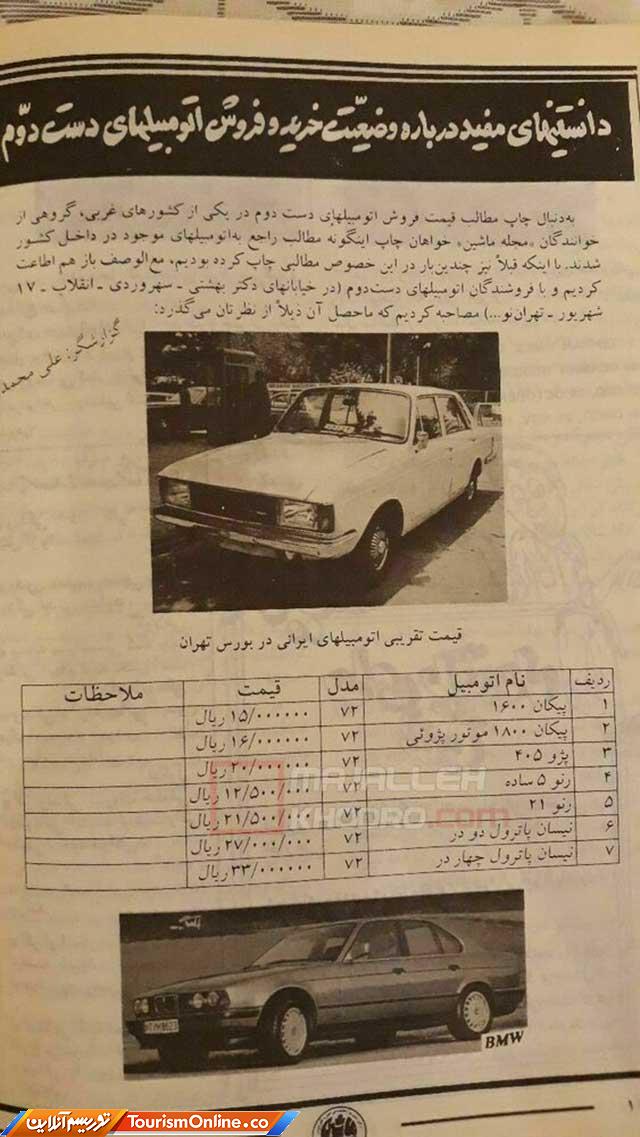 دانستنیهای مفید درباره وضعیّت خرید و فروش اتومبیلهای دست دوّم
به‌دنبال چاپ مطالب قیمت فروش اتومبیلهای دست دوم در یکی از کشورهای غربی، گروهی از
خوانندگان «مجله ماشین» خواهان چاپ اینگونه مطالب راجع به‌اتومبیلهای موجود در داخل کشور
شدند. با اینکه قبلاً نیز چندین‌بار در این خصوص مطالبی چاپ کرده بودیم، مع‌الوصف باز هم اطاعت
کردیم و با فروشندگان اتومبیلهای دست‌دوم (در خیابانهای دکتر بهشتی ـ سهروردی ـ انقلاب ـ ۱۷
شهریور ـ تهران‌نو...) مصاحبه کردیم که ماحصل آن ذیلاً از نظرتان می‌گذرد:
گزارشگر: علی محمد
قیمت تقریبی اتومبیلهای ایرانی در بورس تهران
ردیف نام اتومبیل مدل قیمت ملاحظات
۱ پیکان ۱۶۰۰ ۷۲ ۱۵/۰۰۰۰۰۰ ریال
۲ پیکان ۱۸۰۰ موتور پژوئی ۷۲ ۱۶/۰۰۰۰۰۰ ریال
۳ پژو ۴۰۵ ۷۲ ۲۰/۰۰۰۰۰۰ ریال
۴ رنو ۵ ساده ۷۲ ۱۲/۵۰۰/۰۰۰ ریال
۵ رنو ۲۱ ۷۲ ۲۱/۵۰۰/۰۰۰ ریال
۶ نیسان پاترول دو در ۷۲ ۲۷/۰۰۰/۰۰۰ ریال
۷ نیسان پاترول چهار در ۷۲ ۳۳/۰۰۰۰۰۰ ریال
MAJALLEH
KHODRO.com
BMW
۱
توریسم آنلاین TourismOnline.co